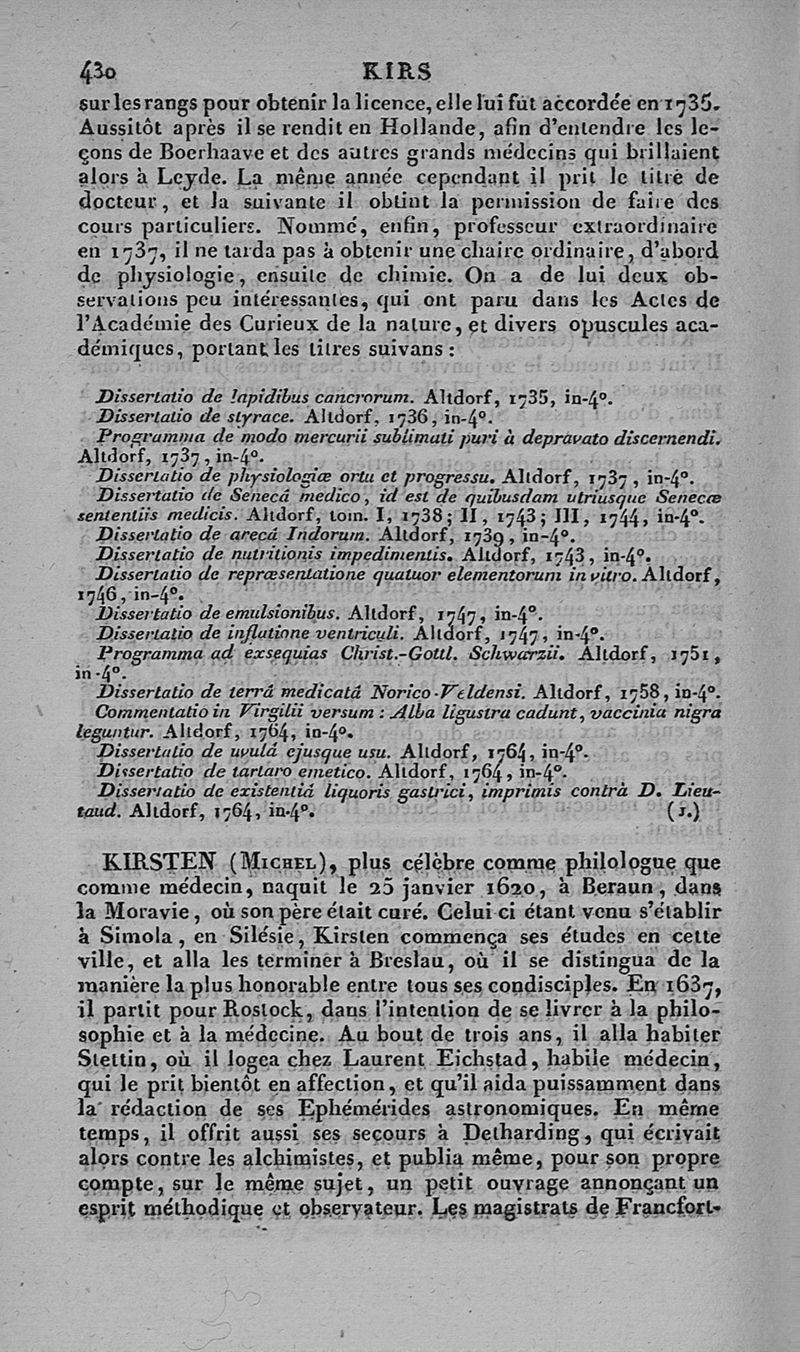 430 KIRS
sur les rangs pour obtenir la licence, elle lui fut accordée en 1735.
Aussitôt après il se rendit en Hollande, afin d'entendre les le-
çons de Boerhaave et des autres grands médecins qui brillaient
alors à Leyde. La même année cependant il prit le titre de
docteur, et la suivante il obtint la permission de faire des
cours particuliers. Nommé, enfin, professeur extraordinaire
en 1737, il ne tarda pas à obtenir une chaire ordinaire, d'abord
de physiologie, ensuite de chimie. On a de lui deux ob-
servations peu intéressantes, qui ont paru dans les Actes de
l'Académie des Curieux de la nature, et divers opuscules aca-
démiques, portant les titres suivans :
Dissertatio de lapidibus cancrorum. Altdorf, 1735, in-4°.
Dissertatio de styrace. Altdorf, 1736, in-4°.
Programma de modo mercurii sublimati puri à depravato discernendi.
Altdorf, 1737, in-4°.
Dissertatio de physiologiæ ortu et progressu. Altdorf, 1737, in-4°.
Dissertatio de Senecâ medico, id est de quibusdam utriusque Senecæ
sententiis medicis. Altdorf, tom. I, 1738; II, 1743; III, 1744, in-4°.
Dissertatio de arecâ Indorum. Altdorf, 1739, in-4°.
Dissertatio de nutritionis impedimentis. Altdorf, 1743, in-4°.
Dissertatio de repræsentatione quatuor elementorum in vitro. Altdorf,
1746, in-4°.
Dissertatio de emulsionibus. Altdorf, 1747, in-4°.
Dissertatio de inflatione ventriculi. Altdorf, 1747, in-4°.
Programma ad exsequias Christ.-Gottl. Schwarzii. Altdorf, 1751,
in-4°.
Dissertatio de terrâ medicatâ Norico-Veldensi. Altdorf, 1758, in-4°.
Commentatio in Virgilii versum : Alba ligustra cadunt, vaccinia nigra
leguntur. Altdorf, 1764, in-4°.
Dissertatio de uvulâ ejusque usu. Altdorf, 1764, in-4°.
Dissertatio de tartaro emetico. Altdorf, 1764, in-4°.
Dissertatio de existentiâ liquoris gastrici, imprimis contrà D. Lieu-
taud. Altdorf, 1764, in-4°. (J.)
KIRSTEN (MICHEL), plus célèbre comme philologue que
comme médecin, naquit le 25 janvier 1620, à Beraun, dans
la Moravie, où son père était curé. Celui ci étant venu s'établir
à Simola, en Silésie, Kirsten commença ses études en cette
ville, et alla les terminer à Breslau, où il se distingua de la
manière la plus honorable entre tous ses condisciples. En 1637,
il partit pour Rostock, dans l'intention de se livrer à la philo-
sophie et à la médecine. Au bout de trois ans, il alla habiter
Stettin, où il logea chez Laurent Eichstad, habile médecin,
qui le prit bientôt en affection, et qu'il aida puissamment dans
la rédaction de ses Ephémérides astronomiques. En même
temps, il offrit aussi ses secours à Detharding, qui écrivait
alors contre les alchimistes, et publia même, pour son propre
compte, sur le même sujet, un petit ouvrage annonçant un
esprit méthodique et observateur. Les magistrats de Francfort-